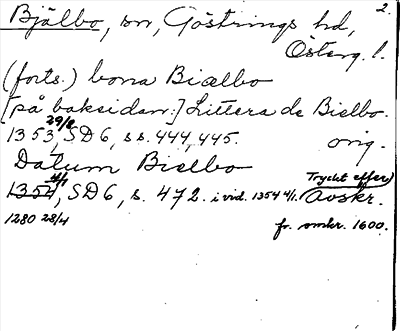 2.
Bjälbo, sn, Göstrings hd,
Österg. l.
(forts.) bona Biælbo
[på baksidan:] Littera de Bielbo.
1353 29/8, SD 6, s.s. 444, 445. orig.
Datum Bielbo
1354 4/1, SD 6, s. 472. i vid. 1354 4/1. Tryckt efter) Avskr.
1280 28/4 fr. omkr. 1600.